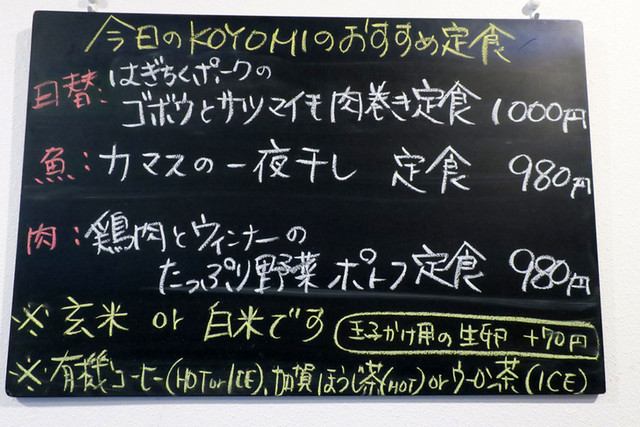 今日のKOYOMIのおすすめ定食
日替: はぎちくポークの
ゴボウとサツマイモ肉巻き定食 1000円
魚: カマスの一夜干し 定食 980円
肉: 鶏肉とウィンナーの
たっぷり野菜 ポトフ定食 980円
※ 玄米 or 白米です 玉子かけ用の生卵 +70円
※ 有機コーヒー(HOT or ICE)、加賀ほうじ茶(HOT) or ウーロン茶(ICE)